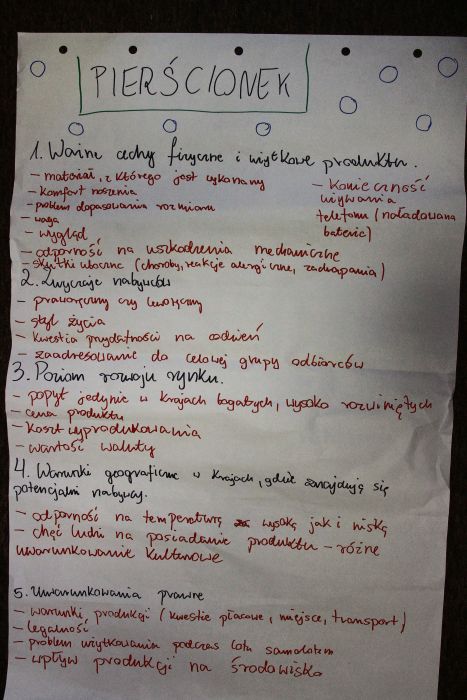 PIERŚCIONEK
1. Ważne cechy fizyczne i użytkowe produktu.
- materiał, z którego jest wykonany
- komfort noszenia
- problem dopasowania rozmiaru
- waga
- wygląd
- odporność na uszkodzenia mechaniczne
- skutki uboczne (choroby, reakcje alergiczne, zadrapania)
- Konieczność
używania
telefonu (naładowana
bateria)
2. Zwyczaje nabywców
- praworęczny czy leworęczny
- styl życia
- kwestia przydatności na codzień
- zaadresowanie do celowej grupy odbiorców
3. Poziom rozwoju rynku.
- popyt jedynie w krajach bogatych, wysoko rozwiniętych
- cena produktu
- koszt wyprodukowania
- wartość waluty
4. Warunki geograficzne w krajach, gdzie znajdują się
potencjalni nabywcy.
- odporność na temperaturę wysoką jak i niską
- chęć ludzi na posiadanie produktu - różne
uwarunkowanie kulturowe
5. Uwarunkowania prawne
- warunki produkcji (kwestie płacowe, miejsce, transport)
- legalność
- problem użytkowania podczas lotu samolotem
- wpływ produkcji na środowisko